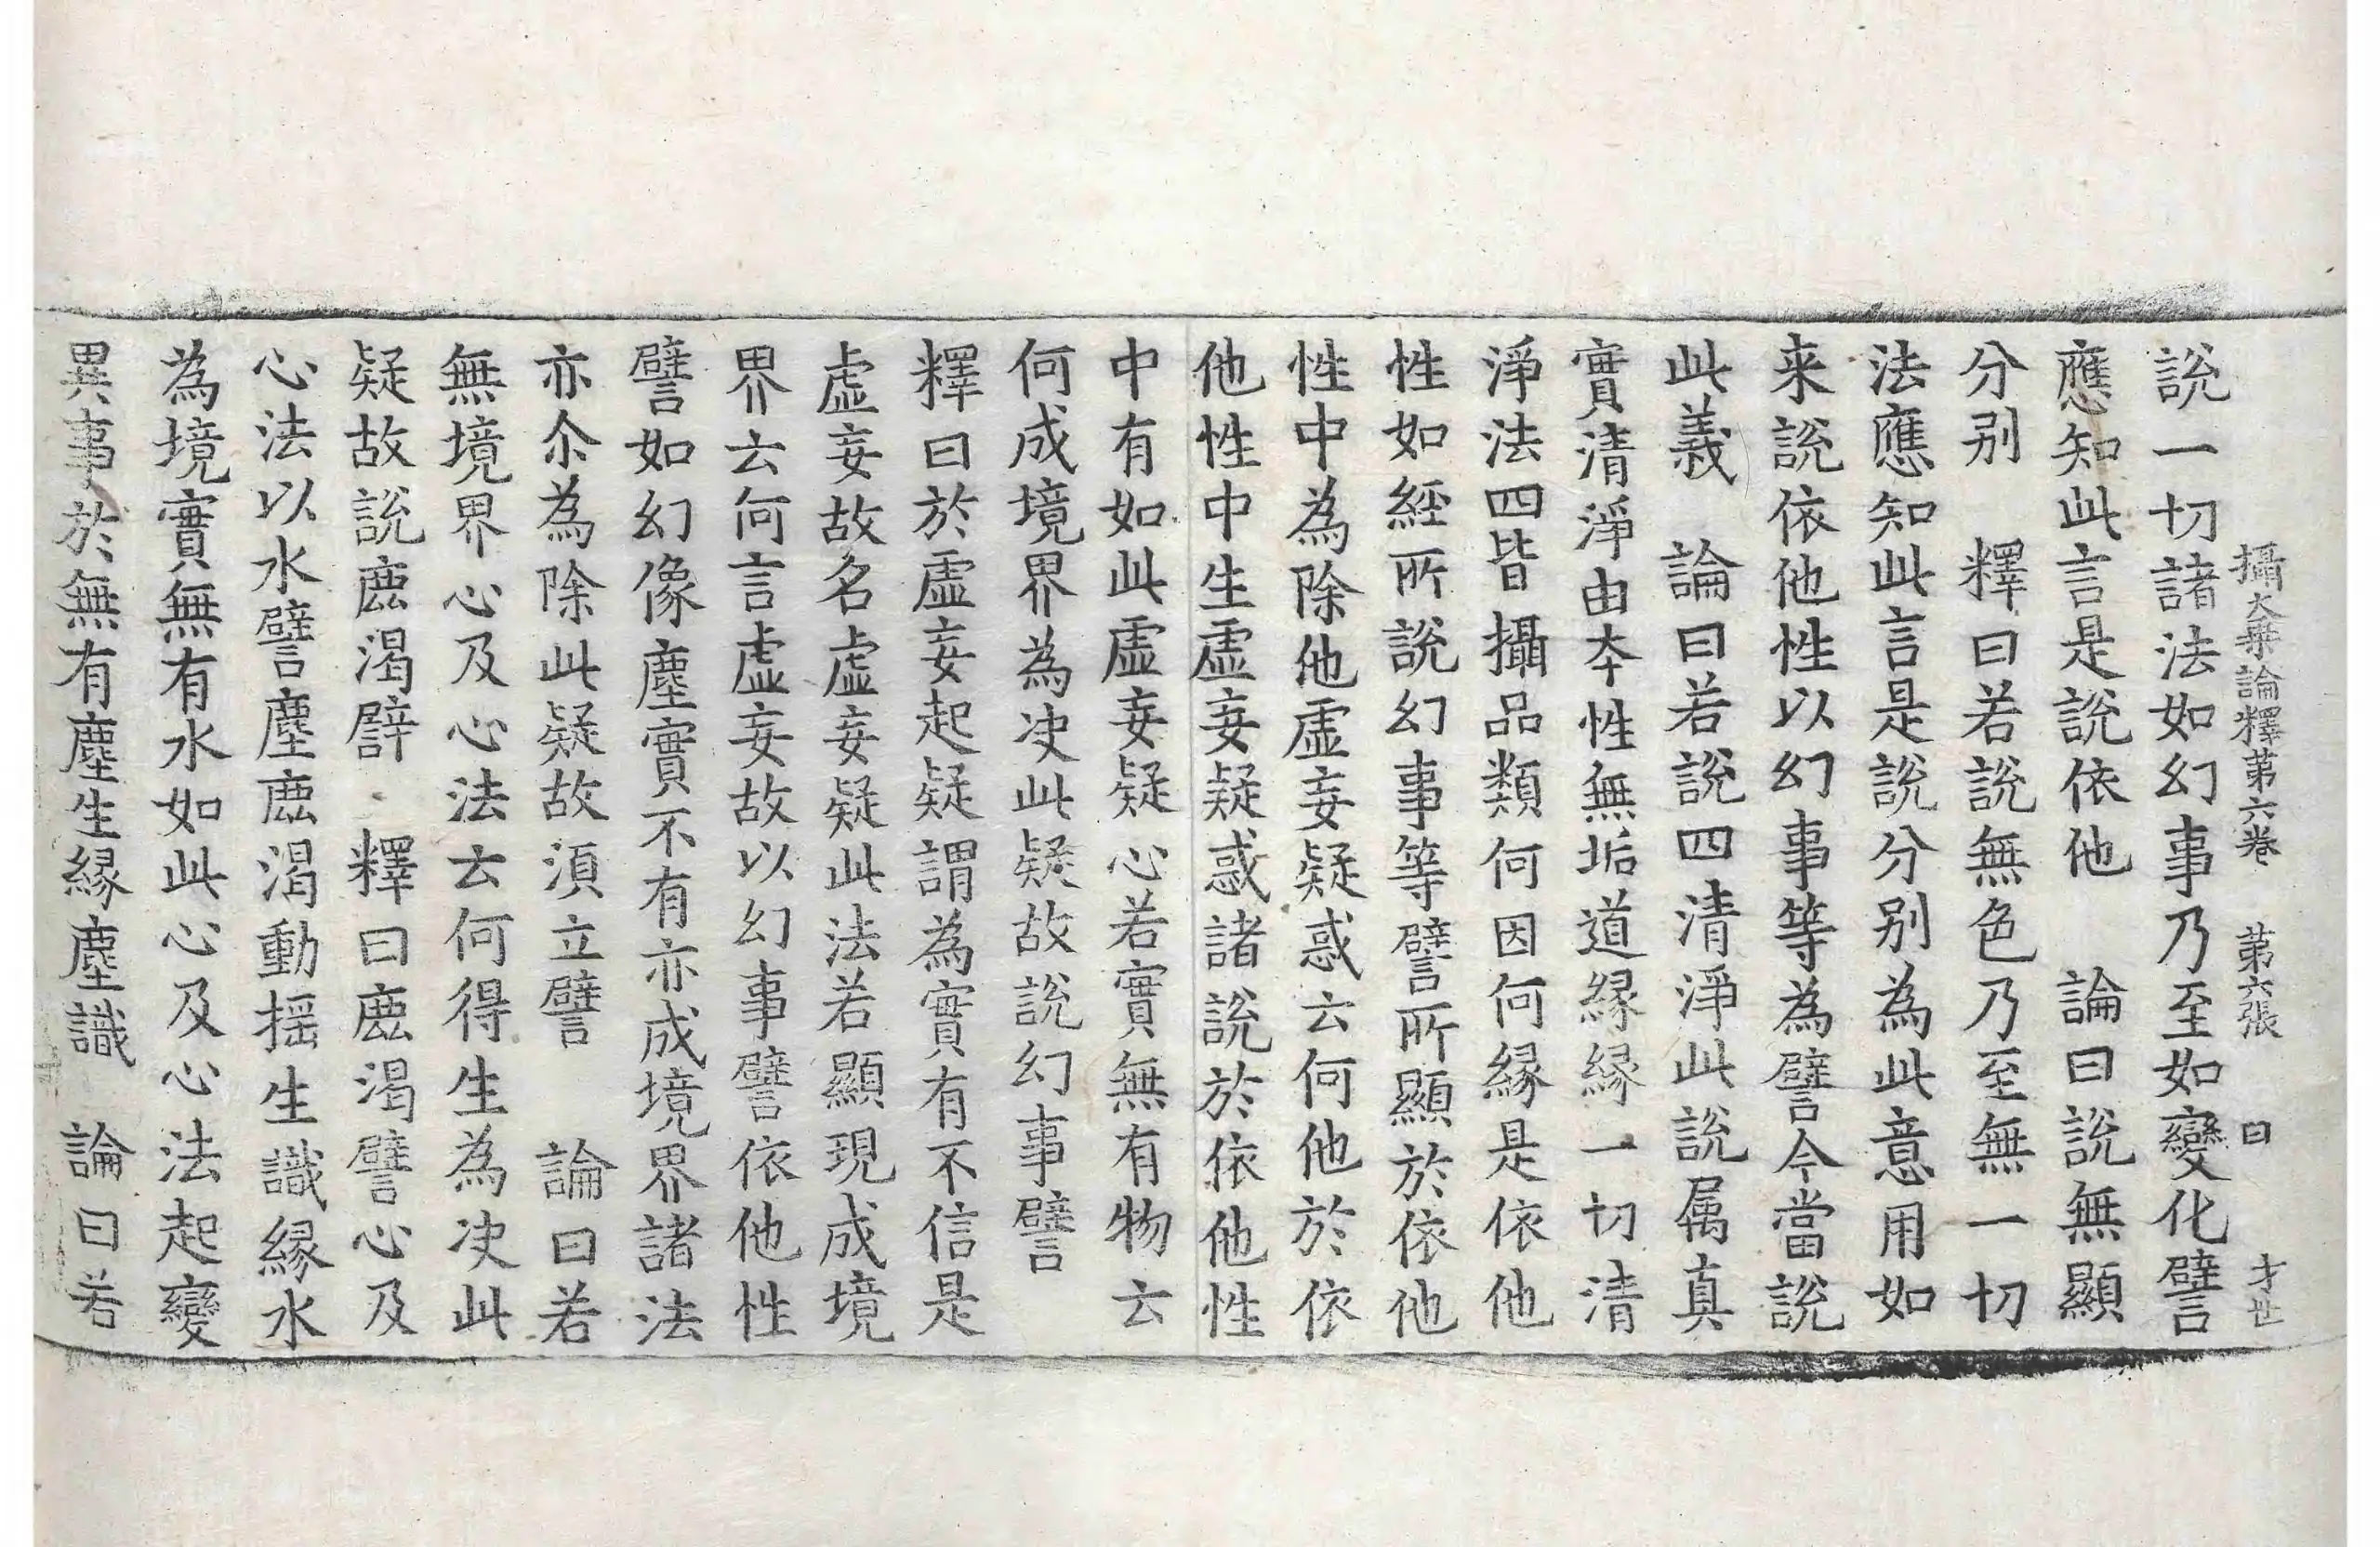 攝大乗論釋第六卷　第六張　曰　才世
說一切諸法如幻事乃至如變化譬
應知此言是說依他　論曰說無顯
分别　釋曰若說無色乃至無一切
法應知此言是說分别為此意用如
来說依他性以幻事等為譬今當說
此義　論曰若說四清淨此說属真
實清淨由夲性無垢道縁縁一切清
淨法四皆攝品類何因何縁是依他
性如經所說幻事等譬所顯於依他
性中為除他虛妄疑惑云何他於依
他性中生虛妄疑惑諸說於依他性
中有如此虛妄疑心若實無有物云
何成境界為决此疑故說幻事譬
釋曰於虛妄起疑謂為實有不信是
虛妄故名虛妄疑此法若顯現成境
界云何言虛妄故以幻事譬依他性
譬如幻像塵實不有亦成境界諸法
亦尒為除此疑故須立譬　論曰若
無境界心及心法云何得生為决此
疑故說鹿渴譬　釋曰鹿渴譬心及
心法以水譬塵鹿渴動揺生識縁水
為境實無有水如此心及心法起變
異事於無有塵生縁塵識　論曰若